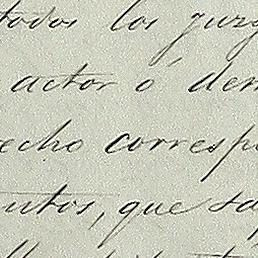 todos los juzg
actor ó dem
echo corresp
utos, que sa